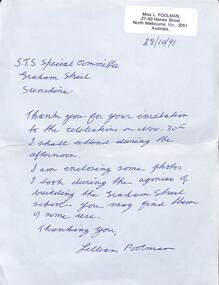 Miss L. POOLMAN,
21/43 Haines Street
North Melbourne Vic. 3051
Australia.
28/10/91
S.T.S Special Committee
Graham Street
Sunshine.
Thank you for your invitation
to the celebrations on Nov. 30th
I shall attend during the
afternoon.
I am enclosing some photos
I took during the agonies of
building the Graham Street
school. You may find them
of some use.
Thanking you,
Lillian Poolman